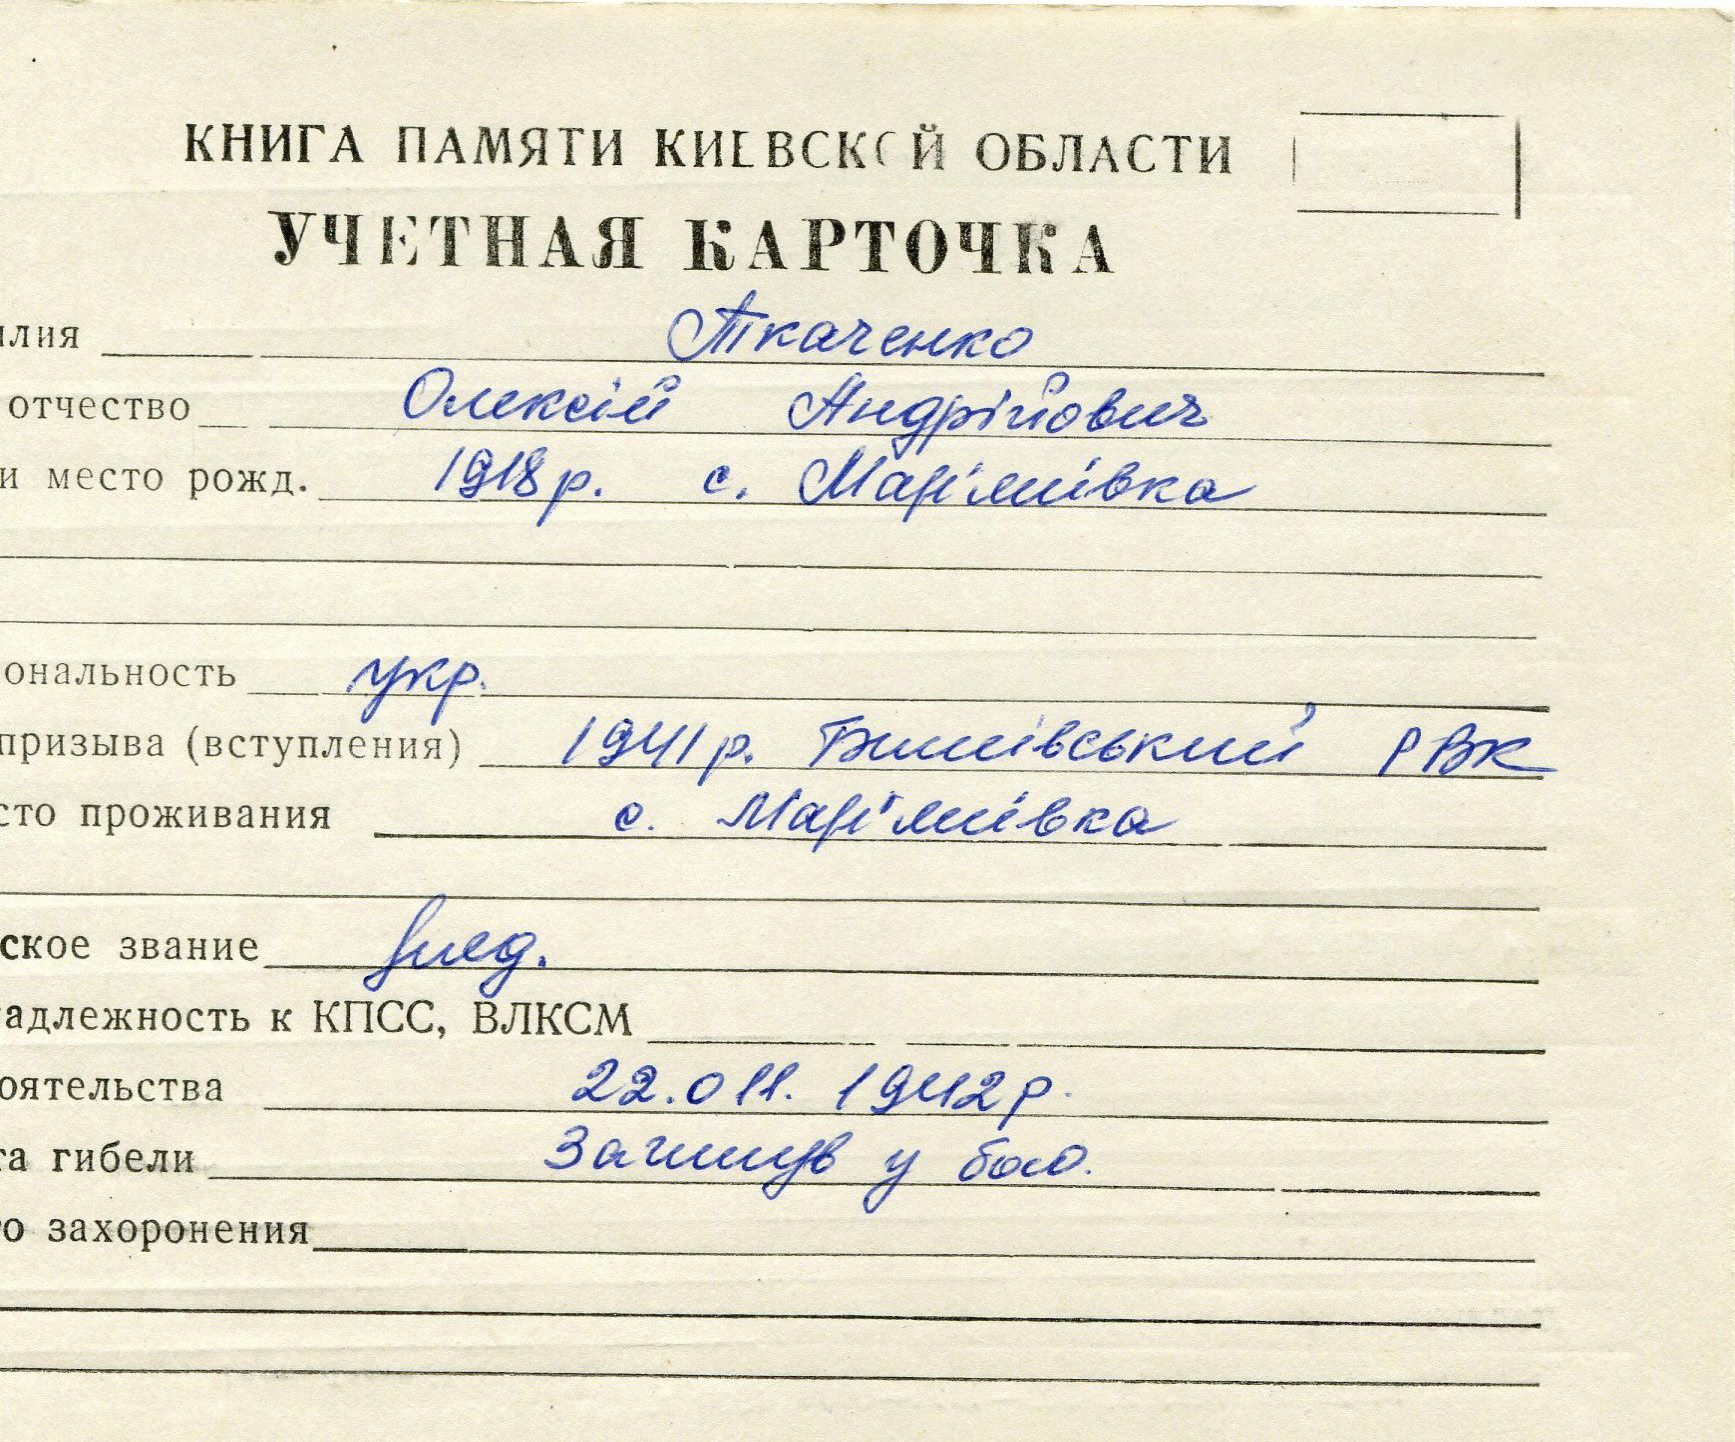 КНИГА ПАМЯТИ КИЕВСКОЙ ОБЛАСТИ
УЧЕТНАЯ КАРТОЧКА
илия Ткаченко
отчество Олексій Андрійович
и место рожд. 1918 р. с. Мар'янівка
ональность укр.
призыва (вступления) 1941 р. Бишівський РВК
сто проживания с. Мар'янівка
ское звание ряд.
адлежность к КПСС, ВЛКСМ
оятельства 22.011. 1942 р.
та гибели Загинув у бою.
о захоронения